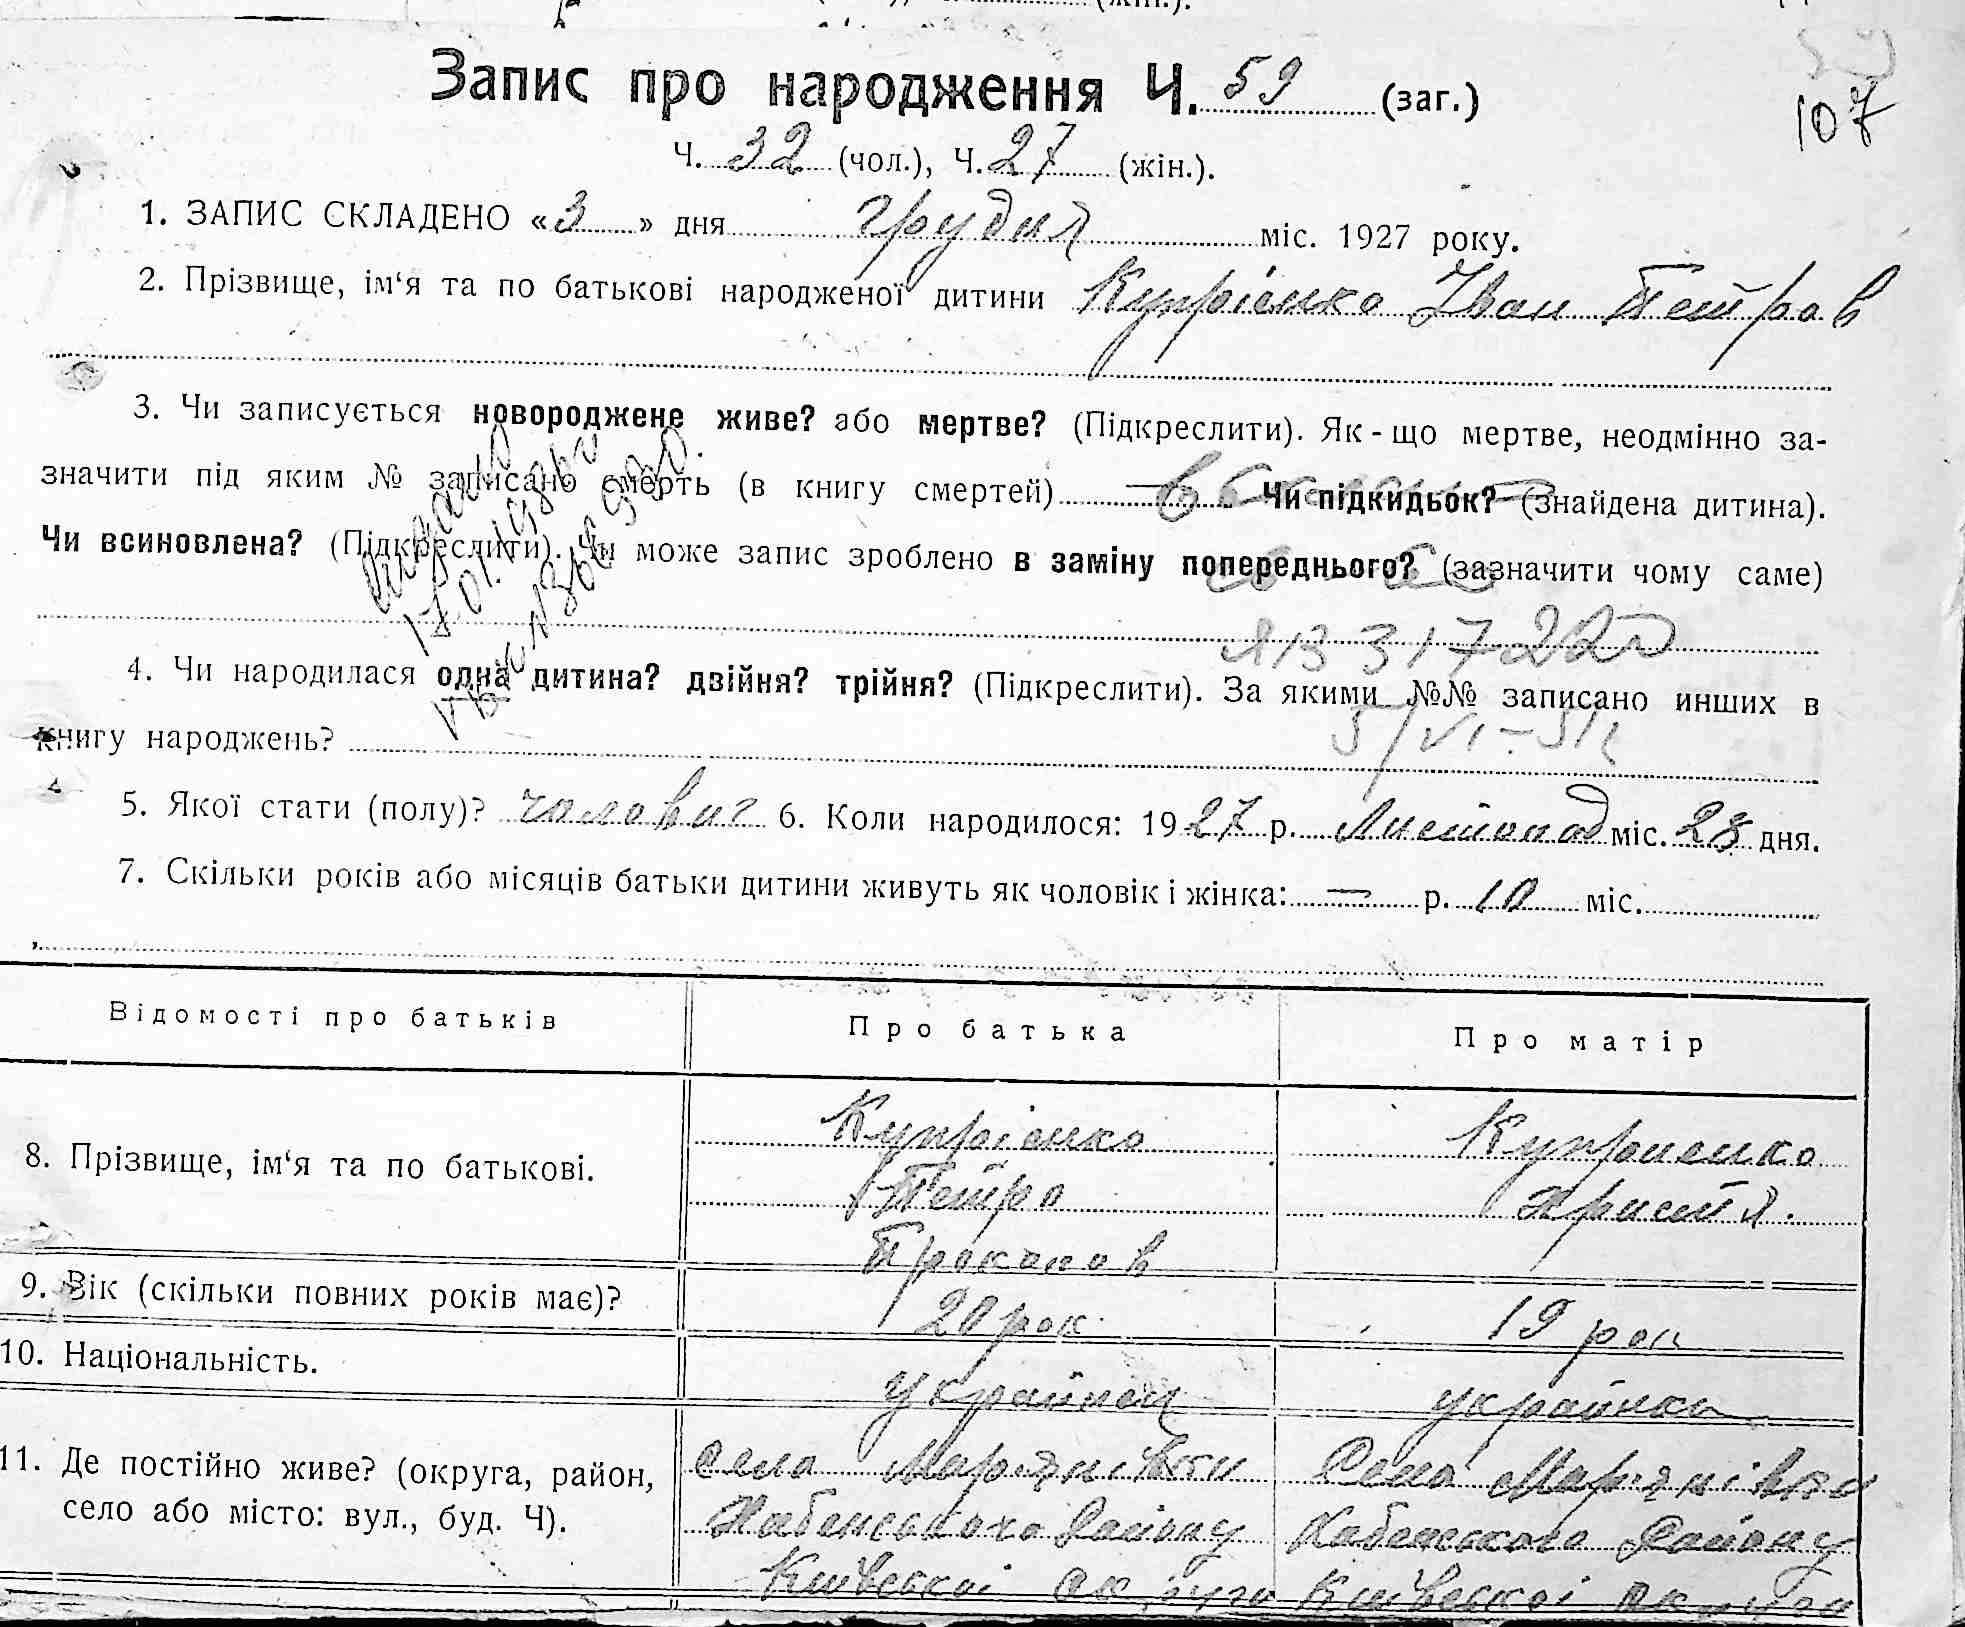 Запис про народження Ч. 59 (заг.)
107
Ч. 32 (чол.), Ч. 27 (жін.).
1. ЗАПИС СКЛАДЕНО «3» дня грудня міс. 1927 року.
2. Прізвище, ім‘я та по батькові народженої дитини Купріенко Іван Петров
3. Чи записується новороджене живе? або мертве? (Підкреслити). Як-що мертве, неодмінно за-
значити під яким № записано смерть (в книгу смертей) Чи підкидьок? (знайдена дитина).
Чи всиновлена? (Підкреслити). Чи може запис зроблено в заміну попереднього? (зазначити чому саме)
17.01.1986
4. Чи народилася одна дитина? двійня? трійня? (Підкреслити). За якими №№ записано инших в
книгу народжень?
5. Якої стати (полу)? чоловіч 6. Коли народилося: 1927 р. Листопад міс. 28 дня.
7. Скільки років або місяців батьки дитини живуть як чоловік і жінка: — р. 10 міс.
Відомості про батьків Про батька Про матір
8. Прізвище, ім‘я та по батькові.
Купріенко Купрпенко
Петро Христя.
Прокопов
9. Вік (скільки повних років має)? 20 рок 19 рок
10. Національність. украйнец украйнка
11. Де постійно живе? (округа, район, село Мар'янівки Села Мар'янівки
село або місто: вул., буд. Ч). Хабенського Району Хабенского Району
Київської округи Київської округи